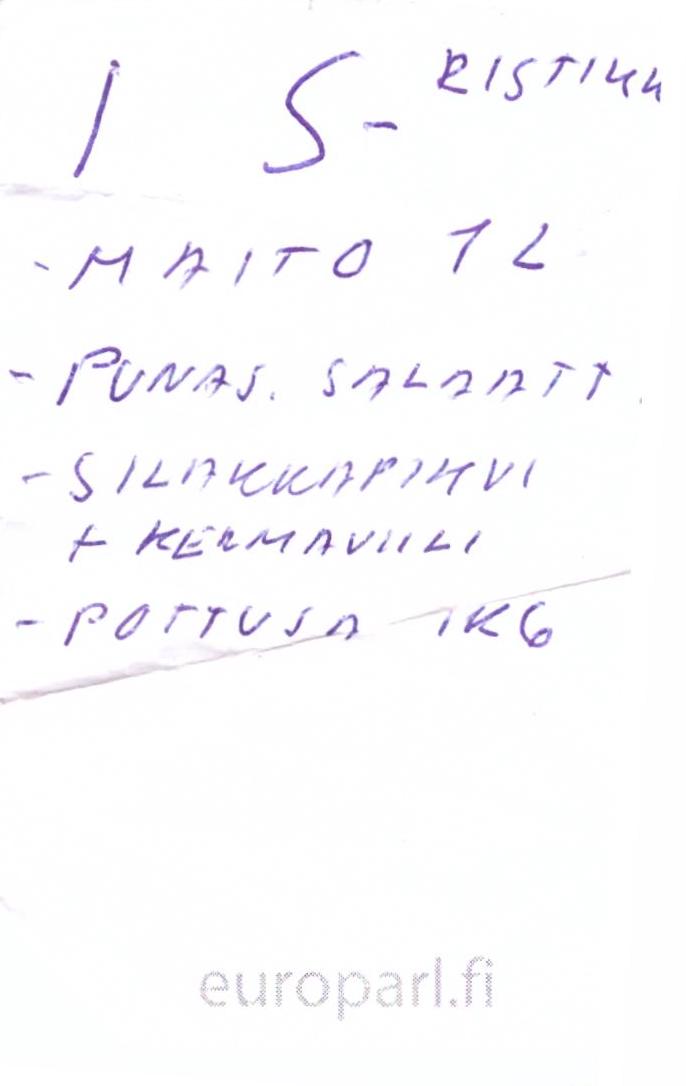 I S- RISTIKK
- MAITO 1 L
- PUNAS. SALAATT.
- SILAKKAPIHVI
+ KERMAVIILI
- POTTUJA 1KG
europarl.fi